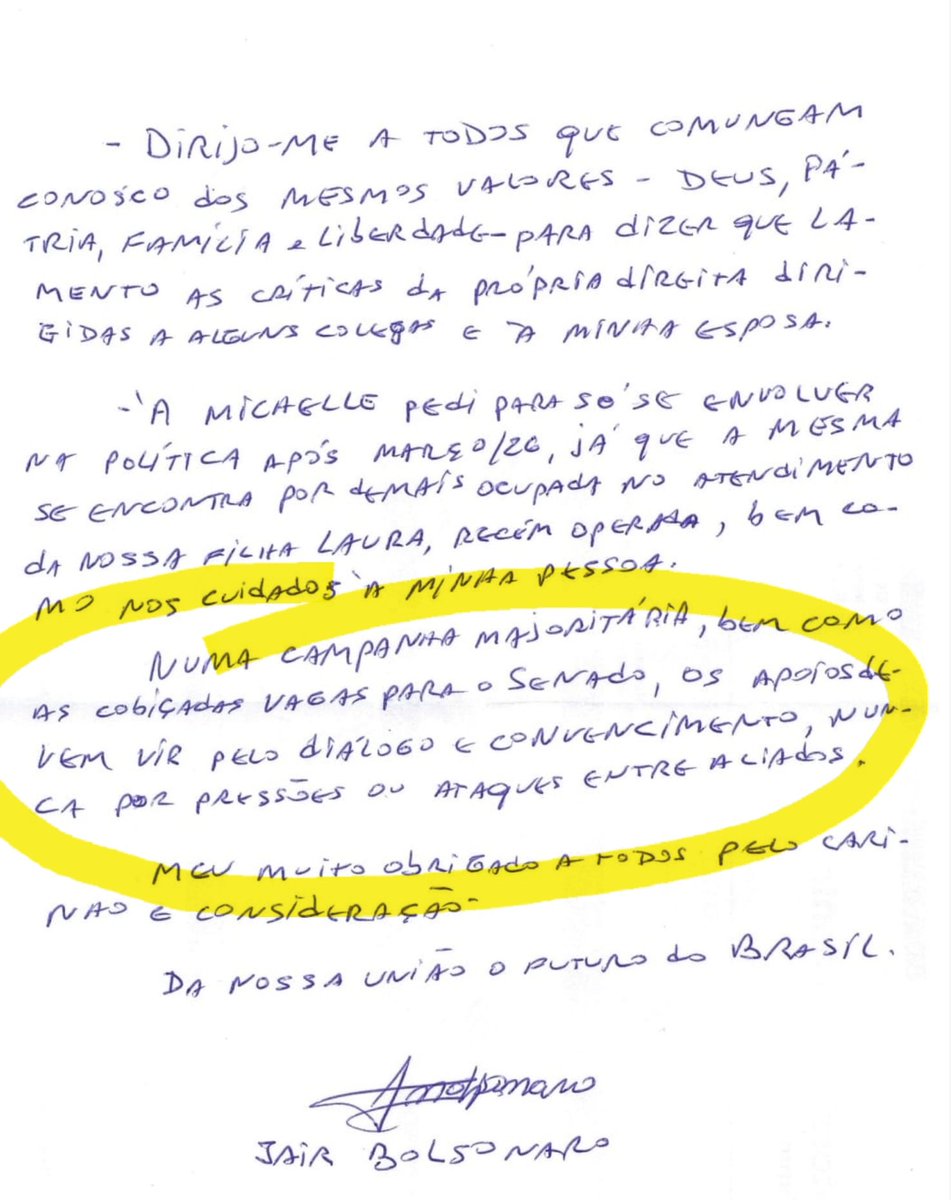 - DIRIJO-ME A TODOS QUE COMUNGAM
CONOSCO DOS MESMOS VALORES - DEUS, PÁ-
TRIA, FAMÍLIA E LIBERDADE - PARA DIZER QUE LA-
MENTO AS CRÍTICAS DA PRÓPRIA DIREITA DIRI-
GIDAS A ALGUNS COLEGAS E À MINHA ESPOSA.
- À MICHELLE PEDI PARA SÓ SE ENVOLVER
NA POLÍTICA APÓS MARÇO/26, JÁ QUE A MESMA
SE ENCONTRA POR DEMAIS OCUPADA NO ATENDIMENTO
DA NOSSA FILHA LAURA, RECÉM OPERADA, BEM CO-
MO NOS CUIDADOS À MINHA PESSOA.
NUMA CAMPANHA MAJORITÁRIA, BEM COMO
AS COBIÇADAS VAGAS PARA O SENADO, OS APOIOS DE-
VEM VIR PELO DIÁLOGO E CONVENCIMENTO, NUN-
CA POR PRESSÕES OU ATAQUES ENTRE ALIADOS.
MEU MUITO OBRIGADO A TODOS PELO CARI-
NHO E CONSIDERAÇÃO-
DA NOSSA UNIÃO O FUTURO DO BRASIL.
JAIR BOLSONARO